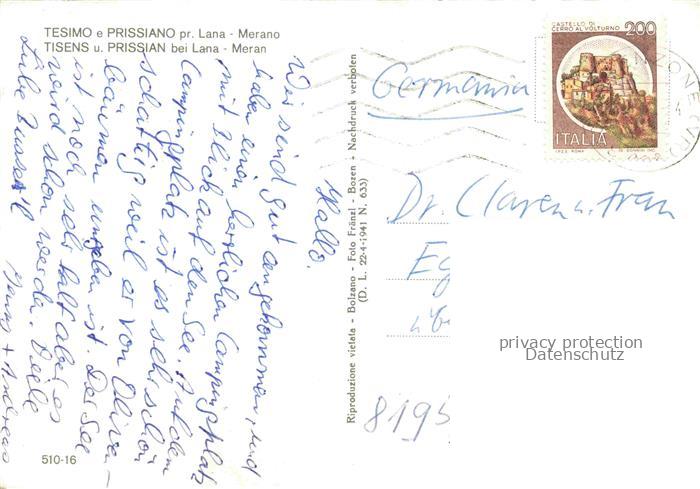 TESIMO e PRISSIANO pr. Lana - Merano
TISENS u. PRISSIAN bei Lana - Meran
Hallo.
Wir sind gut angekommen, und
haben einen herrlichen Campingplatz
mit Blick auf den See. Auf dem
Campingplatz ist es sehr schön
schattig weil er von Oliven-
bäumen umgeben ist. Der See
ist noch sehr kalt aber es
wird schon werden. Viele
Liebe Grüsse
+ Andreas
510-16
Riproduzione vietata - Bolzano - Foto Fränzl - Bozen - Nachdruck verboten
(D. L. 22-4-1941 N. 633)
CASTELLO DI
CERRO AL VOLTURNO
200
ITALIA
Germania
Dr. Claren u. Frau
Eg
übe
8195
privacy protection
Datenschutz